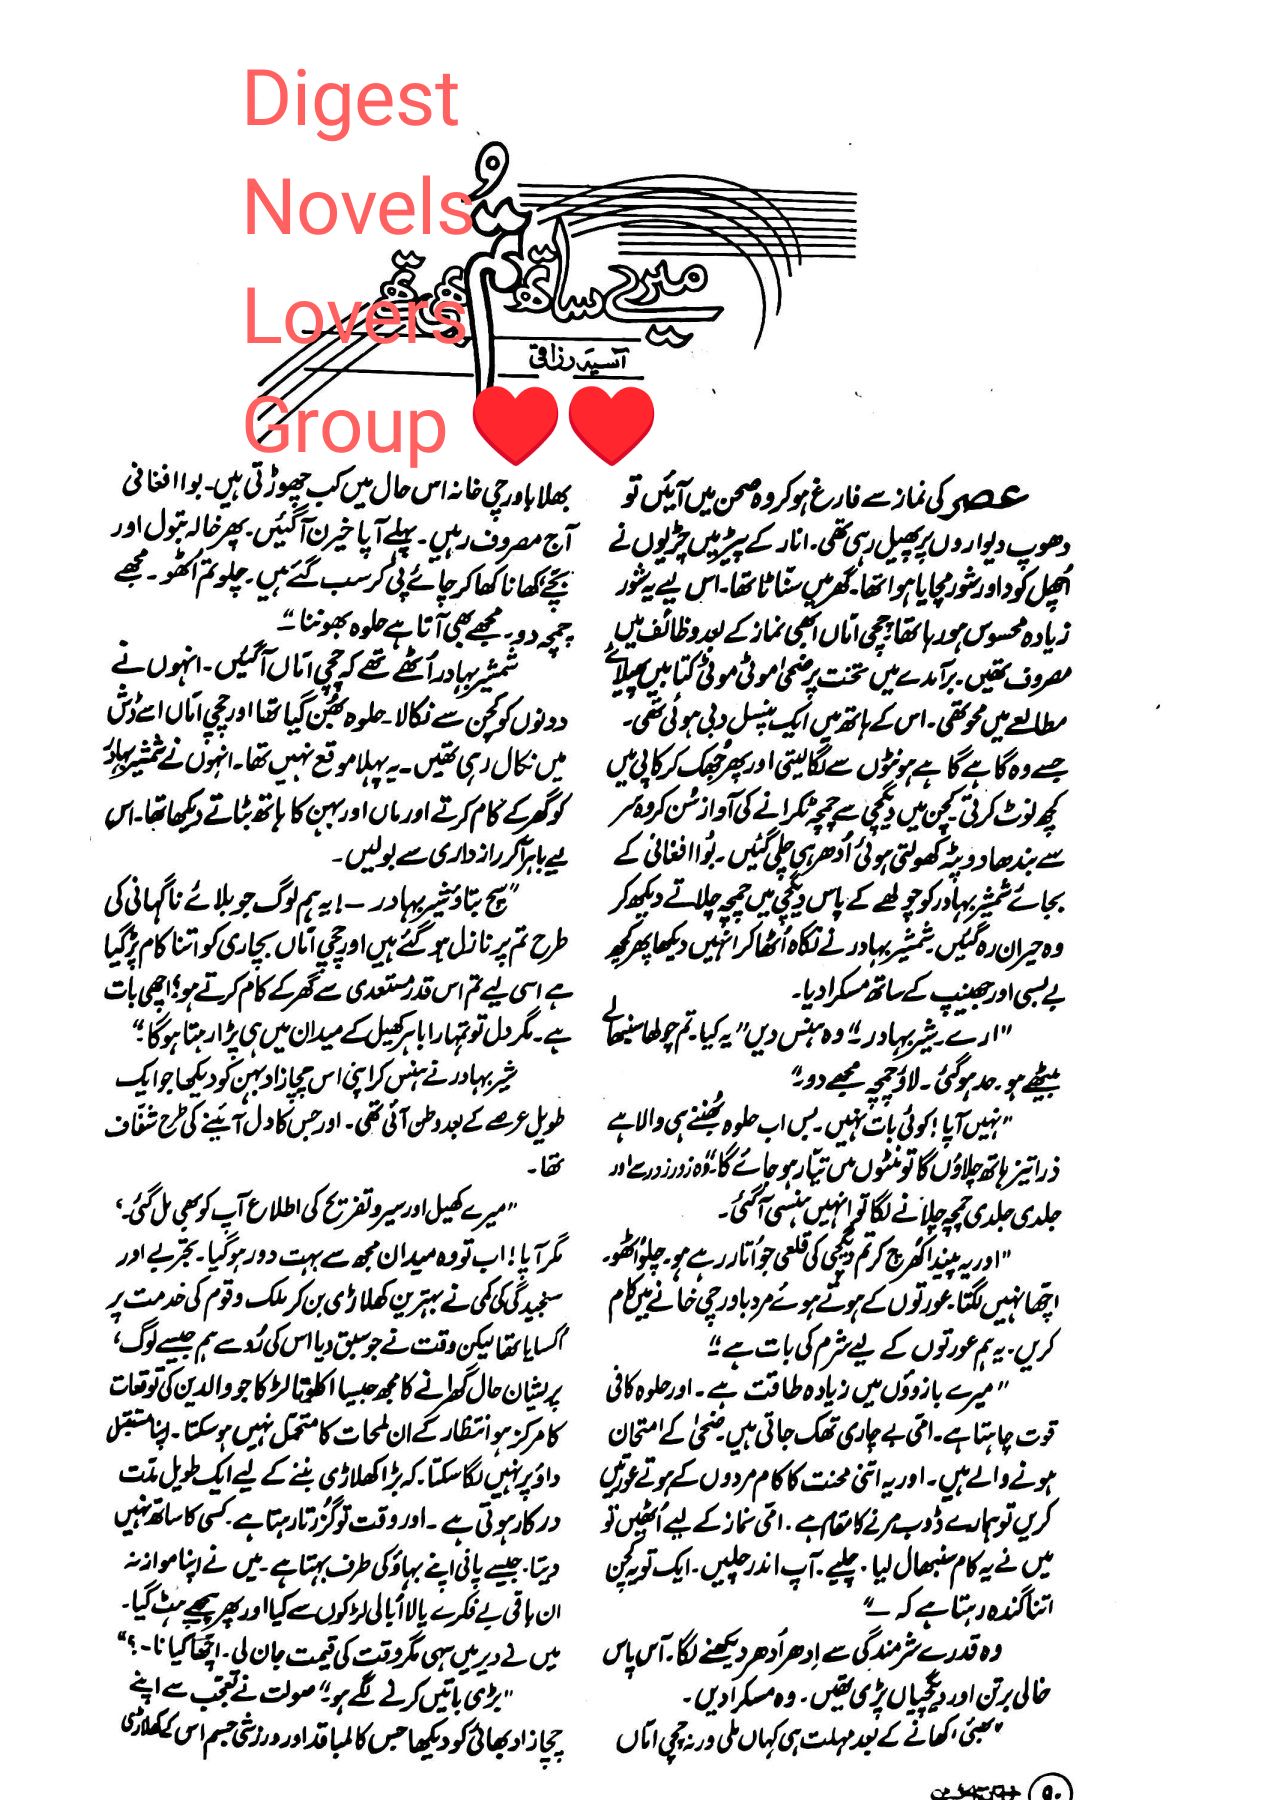 Digest
Novels
Lovers
Group ♥♥
میرے ساتھ تم
آسیہ رزاقی
عصر کی نماز سے فارغ ہو کر وہ صحن میں آئیں تو
دھوپ دیواروں پر پھیل رہی تھی۔ انار کے پیڑ میں چڑیوں نے
اُچھل کود اور شور مچایا ہوا تھا۔ گھر میں سنّاٹا تھا۔ اس لیے یہ شور
زیادہ محسوس ہو رہا تھا۔ چچی امّاں ابھی نماز کے بعد وظائف میں
مصروف تھیں۔ برآمدے میں تخت پر ضحیٰ موٹی موٹی کتابیں پھیلائے
مطالعے میں محو تھی۔ اس کے ہاتھ میں ایک پنسل دبی ہوئی تھی۔
جسے وہ گاہے گاہے ہونٹوں سے لگا لیتی اور پھر جُھک کر کاپی میں
کچھ نوٹ کرتی۔ کچن میں دیگچی سے چمچہ ٹکرانے کی آواز سُن کر وہ سر
سے بندھا دوپٹہ کھولتی ہوئی اُدھر ہی چلی گئیں۔ بُوا افغانی کے
بجائے شمشیر بہادر کو چولھے کے پاس دیگچی میں چمچہ چلاتے دیکھ کر
وہ حیران رہ گئیں۔ شمشیر بہادر نے نگاہ اُٹھا کر انہیں دیکھا پھر کچھ
بے بسی اور جھینپ کے ساتھ مسکرا دیا۔
"ارے۔ شیر بہادر۔" وہ ہنس دیں "یہ کیا۔ تم چولھا سنبھالے
بیٹھے ہو۔ حد ہو گئی۔ لاؤ چمچہ مجھے دو۔"
"نہیں آپا! کوئی بات نہیں۔ بس اب حلوہ بُھننے ہی والا ہے
ذرا تیز ہاتھ چلاؤں گا تو منٹوں میں تیّار ہو جائے گا۔" وہ زور زور سے اور
جلدی جلدی چمچہ چلانے لگا تو انہیں ہنسی آ گئی۔
"اور یہ پیندا کُھرچ کر تم دیگچی کی قلعی جو اُتار رہے ہو۔ چلو اُٹھو۔
اچّھا نہیں لگتا۔ عورتوں کے ہوتے ہوئے مرد باورچی خانے میں کام
کریں۔ یہ ہم عورتوں کے لیے شرم کی بات ہے۔"
"میرے بازوؤں میں زیادہ طاقت ہے۔ اور حلوہ کافی
قوت چاہتا ہے۔ امّی بے چاری تھک جاتی ہیں۔ ضحیٰ کے امتحان
ہونے والے ہیں۔ اور یہ اتنی محنت کا کام مردوں کے ہوتے عورتیں
کریں تو ہمارے ڈوب مرنے کا مقام ہے۔ امّی نماز کے لیے اُٹھیں تو
میں نے یہ کام سنبھال لیا۔ چلیے۔ آپ اندر چلیں۔ ایک تو یہ کچن
اتنا گندہ رہتا ہے کہ —"
وہ قدرے شرمندگی سے اِدھر اُدھر دیکھنے لگا۔ آس پاس
خالی برتن اور دیگچیاں پڑی تھیں۔ وہ مسکرا دیں۔
"بھئی، کھانے کے بعد مہلت ہی کہاں ملی ورنہ چچی امّاں
بھلا باورچی خانہ اس حال میں کب چھوڑتی ہیں۔ بوا افغانی
آج مصروف رہیں۔ پہلے آپا خیرن آ گئیں۔ پھر خالہ بتول اور
بچّے کھانا کھا کر چائے پی کر سب گئے ہیں۔ چلو تم اُٹھو۔ مجھے
چمچہ دو۔ مجھے بھی آتا ہے حلوہ بھوننا۔"
شمشیر بہادر اُٹھے تھے کہ چچی امّاں آ گئیں۔ انہوں نے
دونوں کو کچن سے نکالا۔ حلوہ بُھن گیا تھا اور چچی امّاں اسے ڈش
میں نکال رہی تھیں۔ یہ پہلا موقع نہیں تھا۔ انہوں نے شمشیر بہادر
کو گھر کے کام کرتے اور ماں اور بہن کا ہاتھ بٹاتے دیکھا تھا۔ اس
لیے باہر آ کر راز داری سے بولیں۔
"سچ بتاؤ شیر بہادر —! یہ ہم لوگ جو بلائے ناگہانی کی
طرح تم پر نازل ہو گئے ہیں اور چچی امّاں بچاری کو اتنا کام پڑ گیا
ہے اسی لیے تم اس قدر مُستعدی سے گھر کے کام کرتے ہو؟ اچھی بات
ہے۔ مگر دل تو تمہارا باہر کھیل کے میدان میں ہی پڑا رہتا ہو گا۔"
شیر بہادر نے ہنس کر اپنی اس چچازاد بہن کو دیکھا جو ایک
طویل عرصے کے بعد وطن آئی تھی۔ اور جس کا دل آئینے کی طرح شفّاف
تھا۔
"میرے کھیل اور سیر و تفریح کی اطلاع آپ کو بھی مل گئی۔،
مگر آپا! اب تو وہ میدان مجھ سے بہت دور ہو گیا۔ تجربے اور
سنجیدگی کی کمی نے بہترین کھلاڑی بن کر ملک و قوم کی خدمت پر
اُکسایا تھا لیکن وقت نے جو سبق دیا اس کی رُو سے ہم جیسے لوگ،
پریشان حال گھرانے کا مجھ جیسا اکلوتا لڑکا جو والدین کی توقعات
کا مرکز ہو انتظار کے ان لمحات کا متحمّل نہیں ہو سکتا۔ اپنا مستقبل
داؤ پر نہیں لگا سکتا۔ کہ بڑا کھلاڑی بننے کے لیے ایک طویل مدّت
درکار ہوتی ہے۔ اور وقت تو گزرتا رہتا ہے۔ کسی کا ساتھ نہیں
دیتا۔ جیسے پانی اپنے بہاؤ کی طرف بہتا ہے۔ میں نے اپنا موازنہ
ان باقی بے فکرے یا لااُبالی لڑکوں سے کیا اور پھر پیچھے ہٹ گیا۔
میں نے دیر میں سہی مگر وقت کی قیمت جان لی۔ اچّھا کیا نا—؟"
"بڑی باتیں کرنے لگے ہو۔" صولت نے تعجّب سے اپنے
چچازاد بھائی کو دیکھا جس کا لمبا قد اور ورزشی جسم اس کے کھلاڑی
۹۰